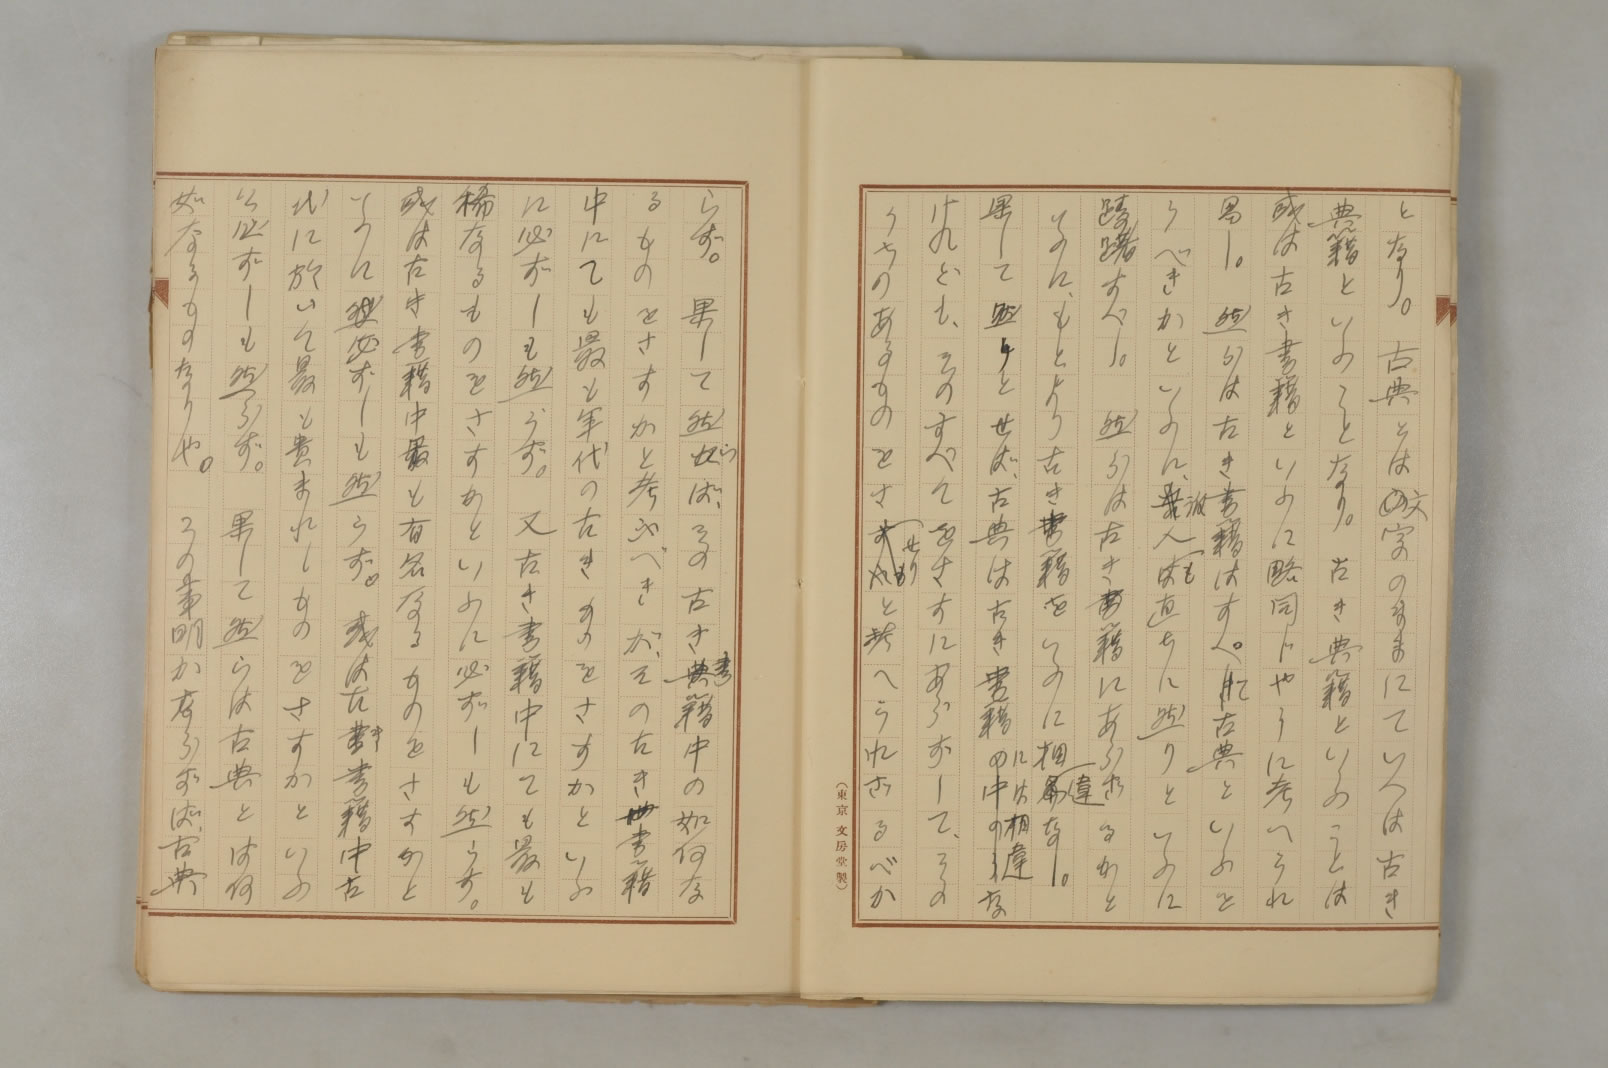 となり。古典とは文字のままにていへは古き
典籍といふことなり。古き典籍といふことは
或は古き書籍といふに略同じやうに考へられ
易し。然らは古き書籍はすべて古典といふと
うべきかといふに、何人も直ちに然りといふに
躊躇すべし。然らは古き書籍にあらざるかと
いふに、もとより古き書籍をいふに相違なし。
果して然りとせば、古典は古き書籍には相違な
けれども、そのすべてをさすにあらずして、その
うちのあるものをさせりと考へられざるべか
（東京 文房堂製）
らず。果して然らば、その古き書籍中の如何な
るものをさすかと考ふべきが、その古き書籍
中にても最も年代の古きものをさすかといふ
に必ずしも然らず。又古き書籍中にても最も
稀なるものをさすかといふに必ずしも然らず。
或は古き書籍中最も有名なるものをさすかと
いふに必ずしも然らず。或は古き書籍中古
代に於いて最も貴まれしものをさすかといふ
に必ずしも然らず。果して然らは古典とは何
如なるものなりや。この事明かならずば、古典